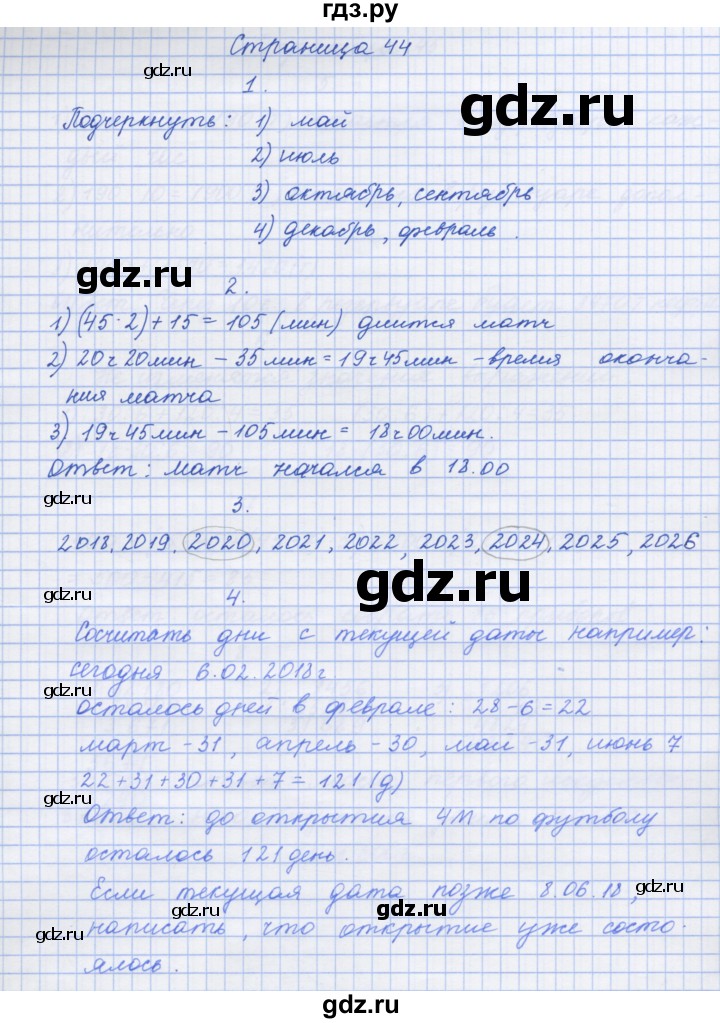 гдз.ру
Страница 44
gdz.ru
1.
gdz.ru
Подчеркнуть: 1) май
2) июль
3) октябрь, сентябрь
4) декабрь, февраль.
gdz.ru
2.
1) (45·2)+15=105 (мин) длится матч
2) 20ч20мин - 35мин=19ч45мин - время оконча-
ния матча
3) 19ч45мин - 105мин = 18ч00мин.
Ответ: матч начался в 18.00
gdz.ru
3.
2018, 2019, 2020, 2021, 2022, 2023, 2024, 2025, 2026
gdz.ru
gdz.ru
4.
Сосчитать дни с текущей даты например:
сегодня 6.02.2018г
gdz.ru
осталось дней в феврале: 28-6=22
март -31, апрель -30, май -31, июнь 7
22+31+30+31+7=121 (д)
gdz.ru
Ответ: до открытия ЧМ по футболу
осталось 121 день.
Если текущая дата позже 8.06.18,
gdz.ru
gdz.ru
gdz.ru
написать, что открытие уже состо-
gdz.ru
gdz.ru
ялось.
gdz.ru